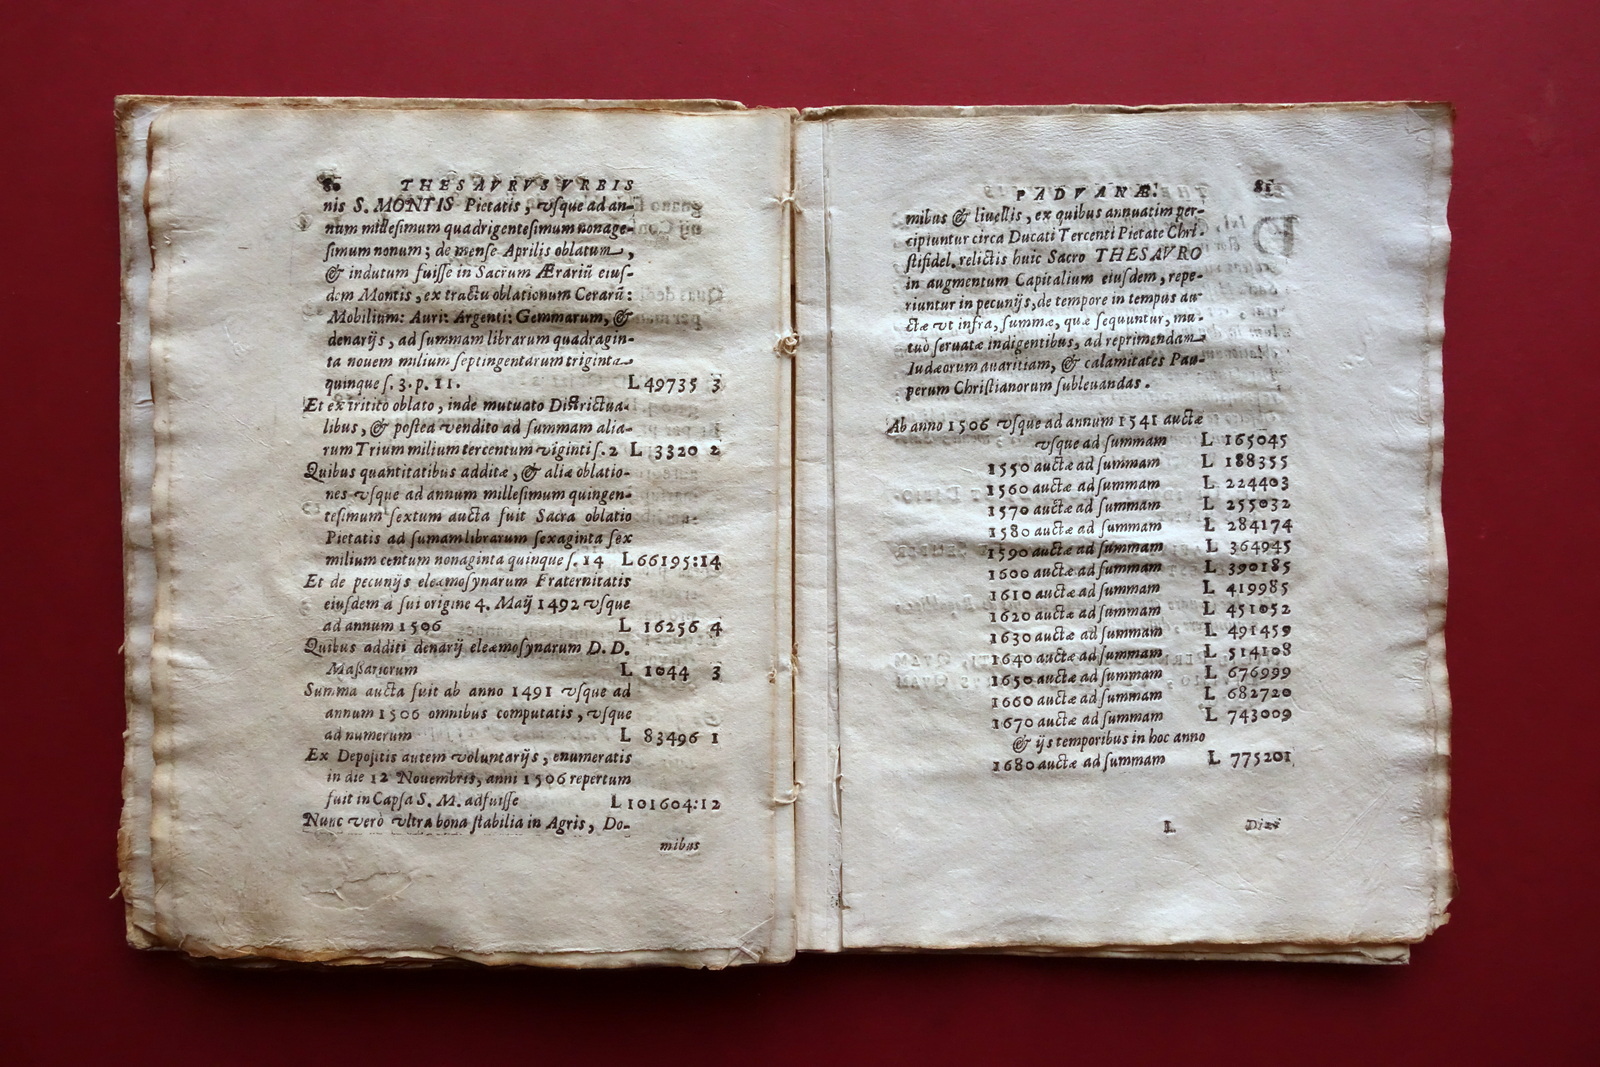 80 THESAVRVS VRBIS
nis S. MONTIS Pietatis, vſque ad an-
num milleſimum quadrigenteſimum nonage-
ſimum nonum; de menſe Aprilis oblatum,
& indutum fuiſſe in Sacrum Ærariũ eiuſ-
dem Montis, ex tractu oblationum Cerarũ:
Mobilium: Auri: Argenti: Gemmarum, &
denarijs, ad ſummam librarum quadragin-
ta nouem milium ſeptingentarum triginta
quinque ſ. 3. p. 11. L 49735 3
Et ex tritito oblato, inde mutuato Diſtrictua-
libus, & poſtea vendito ad ſummam alia-
rum Trium milium tercentum viginti ſ. 2 L 3320 2
Quibus quantitatibus additæ, & aliæ oblatio-
nes vſque ad annum milleſimum quingen-
teſimum ſextum aucta fuit Sacra oblatio
Pietatis ad ſumam librarum ſexaginta ſex
milium centum nonaginta quinque ſ. 14 L 66195:14
Et de pecunijs eleæmoſynarum Fraternitatis
eiuſdem à ſui origine 4. Maij 1492 vſque
ad annum 1506 L 16256 4
Quibus additi denarij eleæmoſynarum D. D.
Maßariorum L 1044 3
Summa aucta fuit ab anno 1491 vſque ad
annum 1506 omnibus computatis, vſque
ad numerum L 83496 1
Ex Depoſitis autem voluntarijs, enumeratis
in die 12 Nouembris, anni 1506 repertum
fuit in Capſa S. M. adfuiſſe L 101604:12
Nunc verò vltra bona ſtabilia in Agris, Do-
mibus
PADVANÆ. 81
mibus & liuellis, ex quibus annuatim per-
cipiuntur circa Ducati Tercenti Pietate Chri-
ſtifidel. relictis huic Sacro THESAVRO
in augmentum Capitalium eiuſdem, repe-
riuntur in pecunijs, de tempore in tempus au-
ctæ vt infra, ſummæ, quæ ſequuntur, mu-
tuò ſeruatæ indigentibus, ad reprimendam
Iudæorum auaritiam, & calamitates Pau-
perum Chriſtianorum ſubleuandas.
Ab anno 1506 vſque ad annum 1541 auctæ
vſque ad ſummam L 165045
1550 auctæ ad ſummam L 188355
1560 auctæ ad ſummam L 224403
1570 auctæ ad ſummam L 255032
1580 auctæ ad ſummam L 284174
1590 auctæ ad ſummam L 364945
1600 auctæ ad ſummam L 390185
1610 auctæ ad ſummam L 419985
1620 auctæ ad ſummam L 451052
1630 auctæ ad ſummam L 491459
1640 auctæ ad ſummam L 514108
1650 auctæ ad ſummam L 676999
1660 auctæ ad ſummam L 682720
1670 auctæ ad ſummam L 743009
& ijs temporibus in hoc anno
1680 auctæ ad ſummam L 775201
L